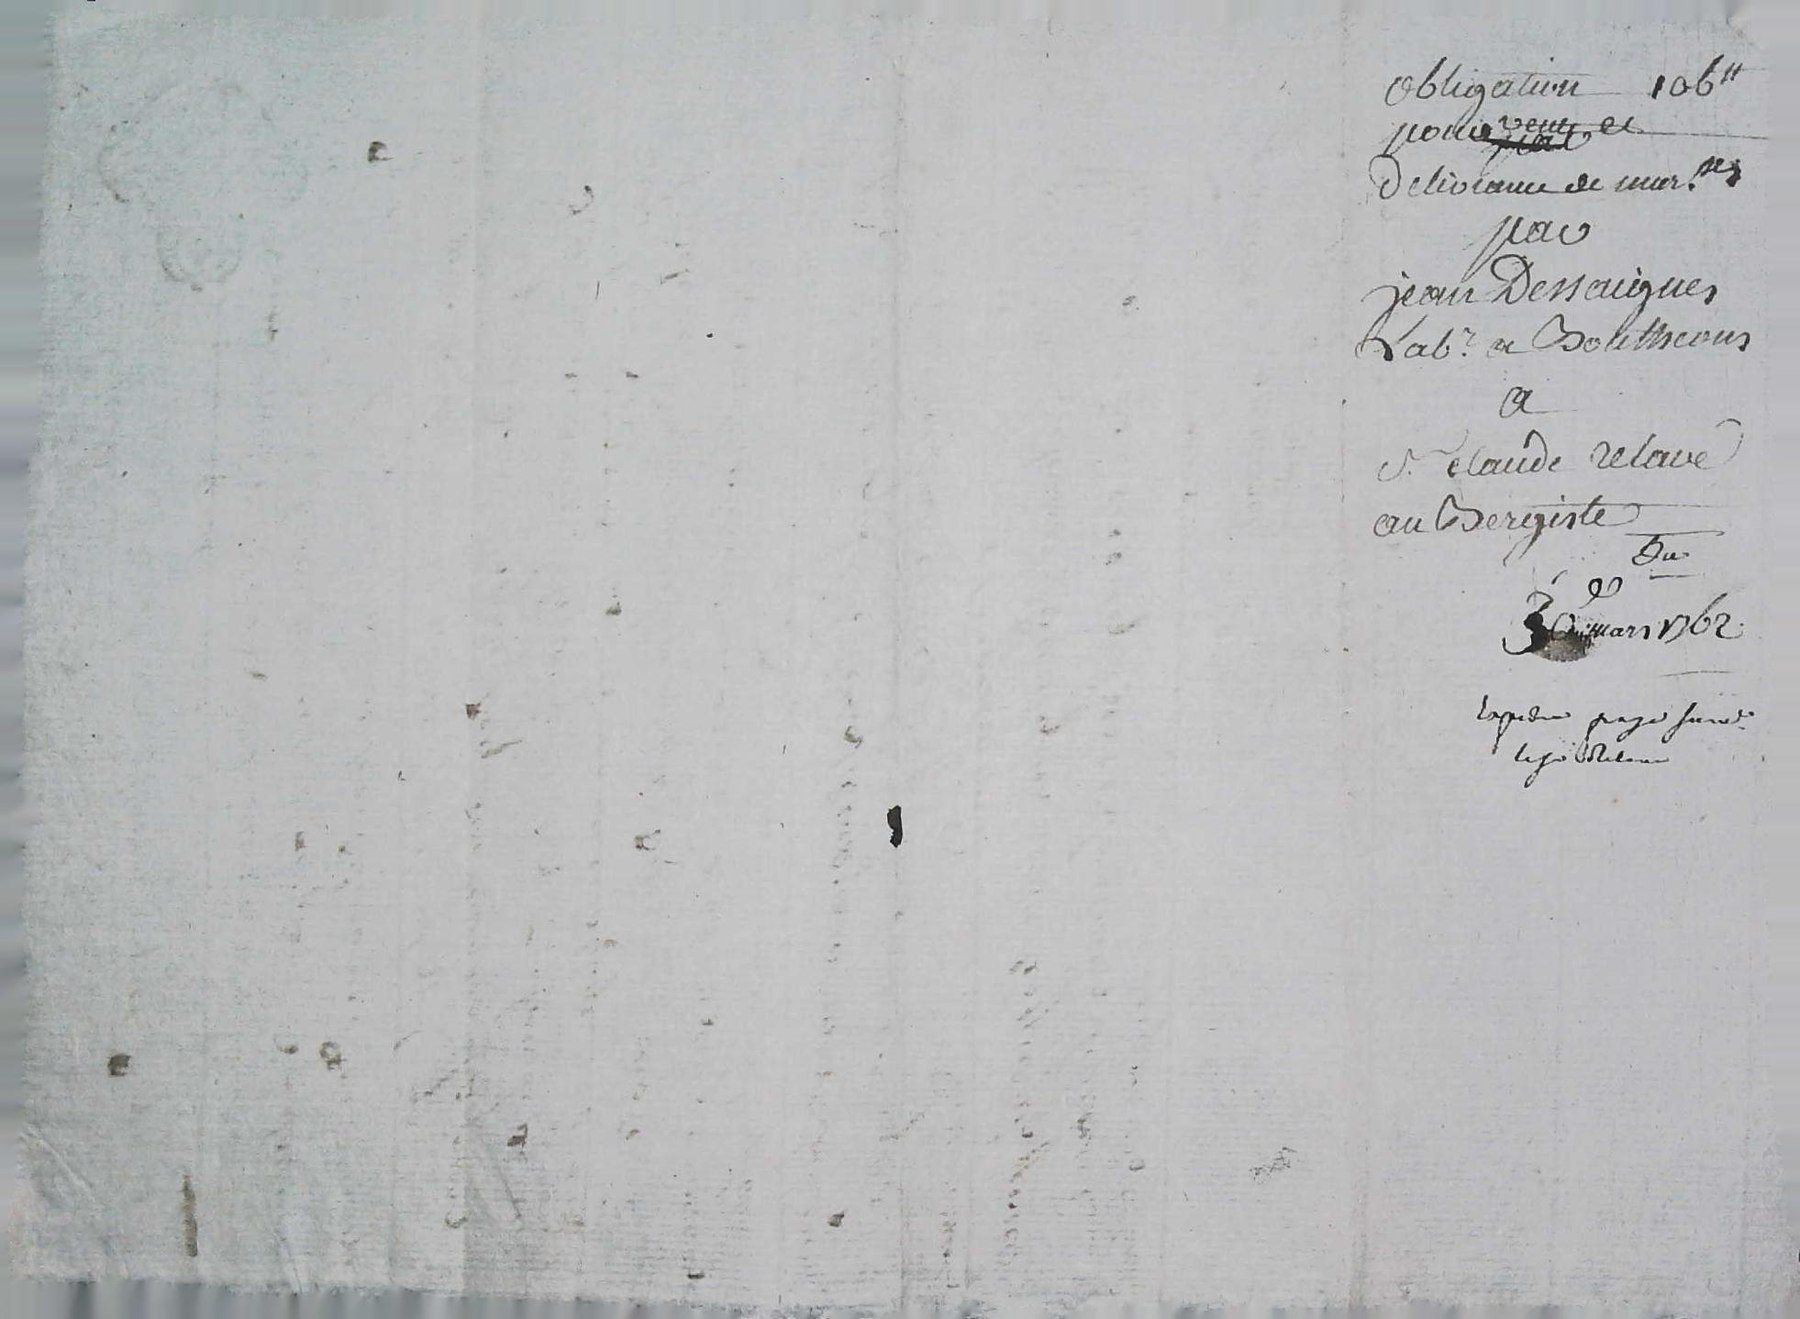 obligation 106ᵗᵗ
pour vente et
Delivrance de mar.ses
par
jean Dessaignes
Labʳ. a Bouthecous
a
S. Claude relave
auBergiste
Du
30 mars 1762
page